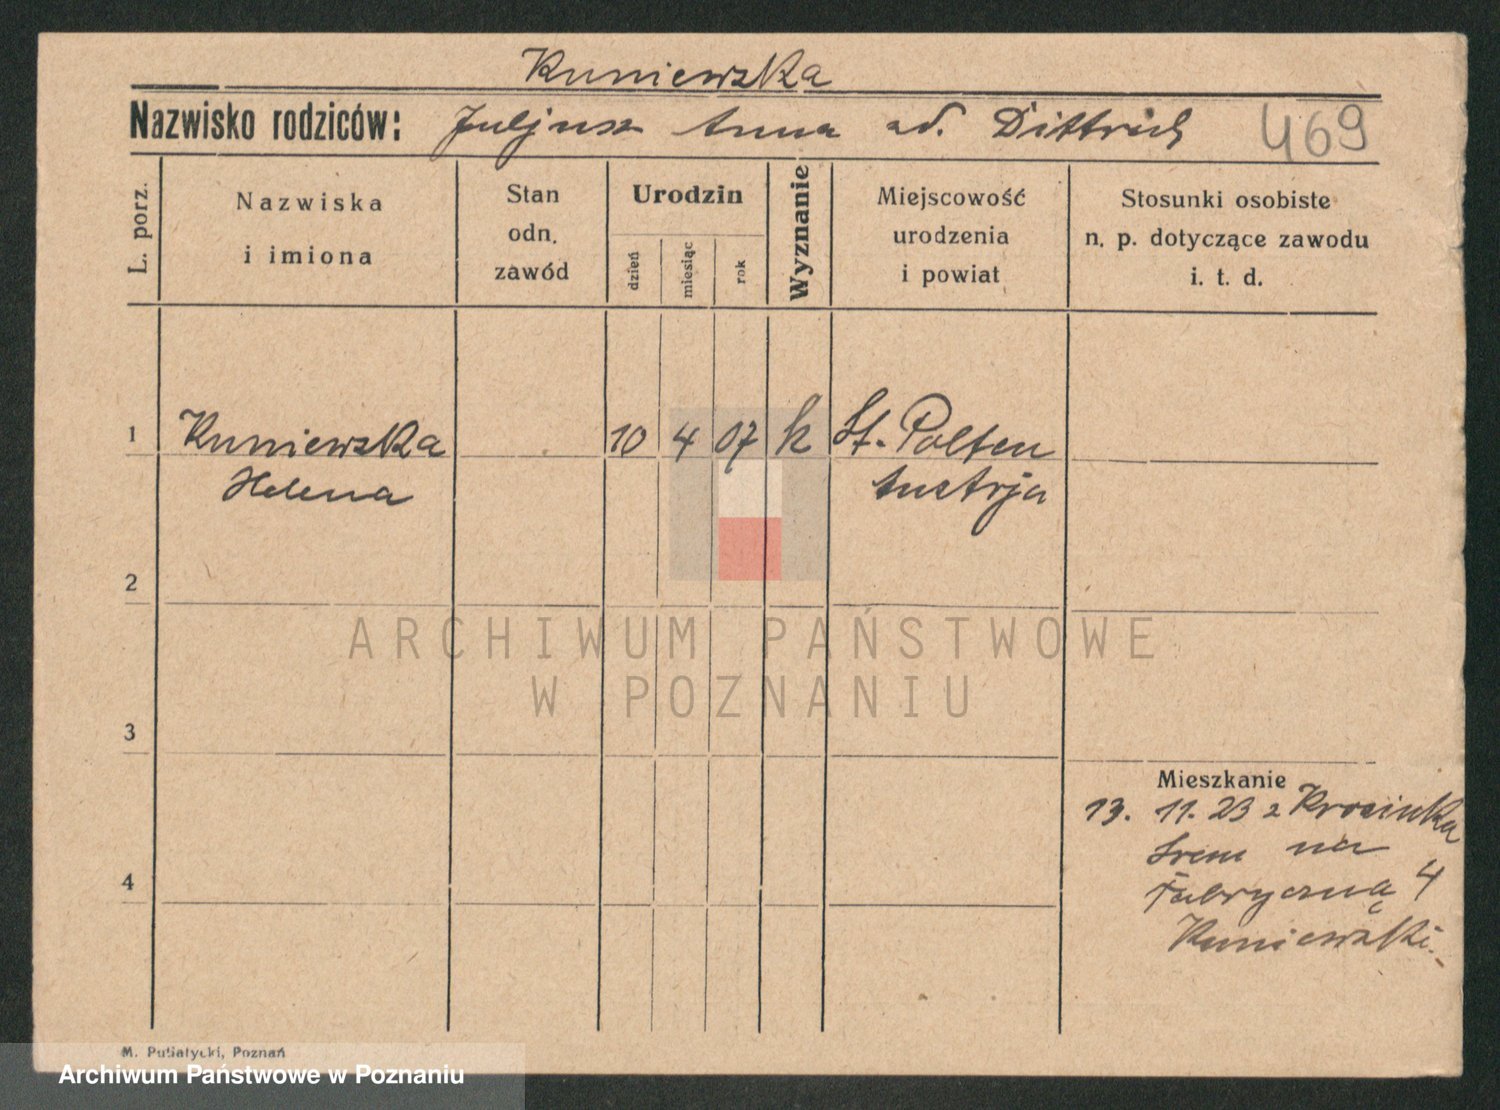 Kuniewska
Nazwisko rodziców: Juljusz Anna od. Dittrich
469
L. porz.
Nazwiska
i imiona
Stan
odn.
zawód
Urodzin
dzień
miesiąc
rok
Wyznanie
Miejscowość
urodzenia
i powiat
Stosunki osobiste
n. p. dotyczące zawodu
i. t. d.
1 Kuniewska 10 4 07 k St. Polten
Helena Austrja
2
ARCHIWUM PAŃSTWOWE
W POZNANIU
3
Mieszkanie
13. 11. 23 z Krosinka
Śrem na
4
Fabryczną 4
Kuniewski.
M. Putiatycki, Poznań
Archiwum Państwowe w Poznaniu